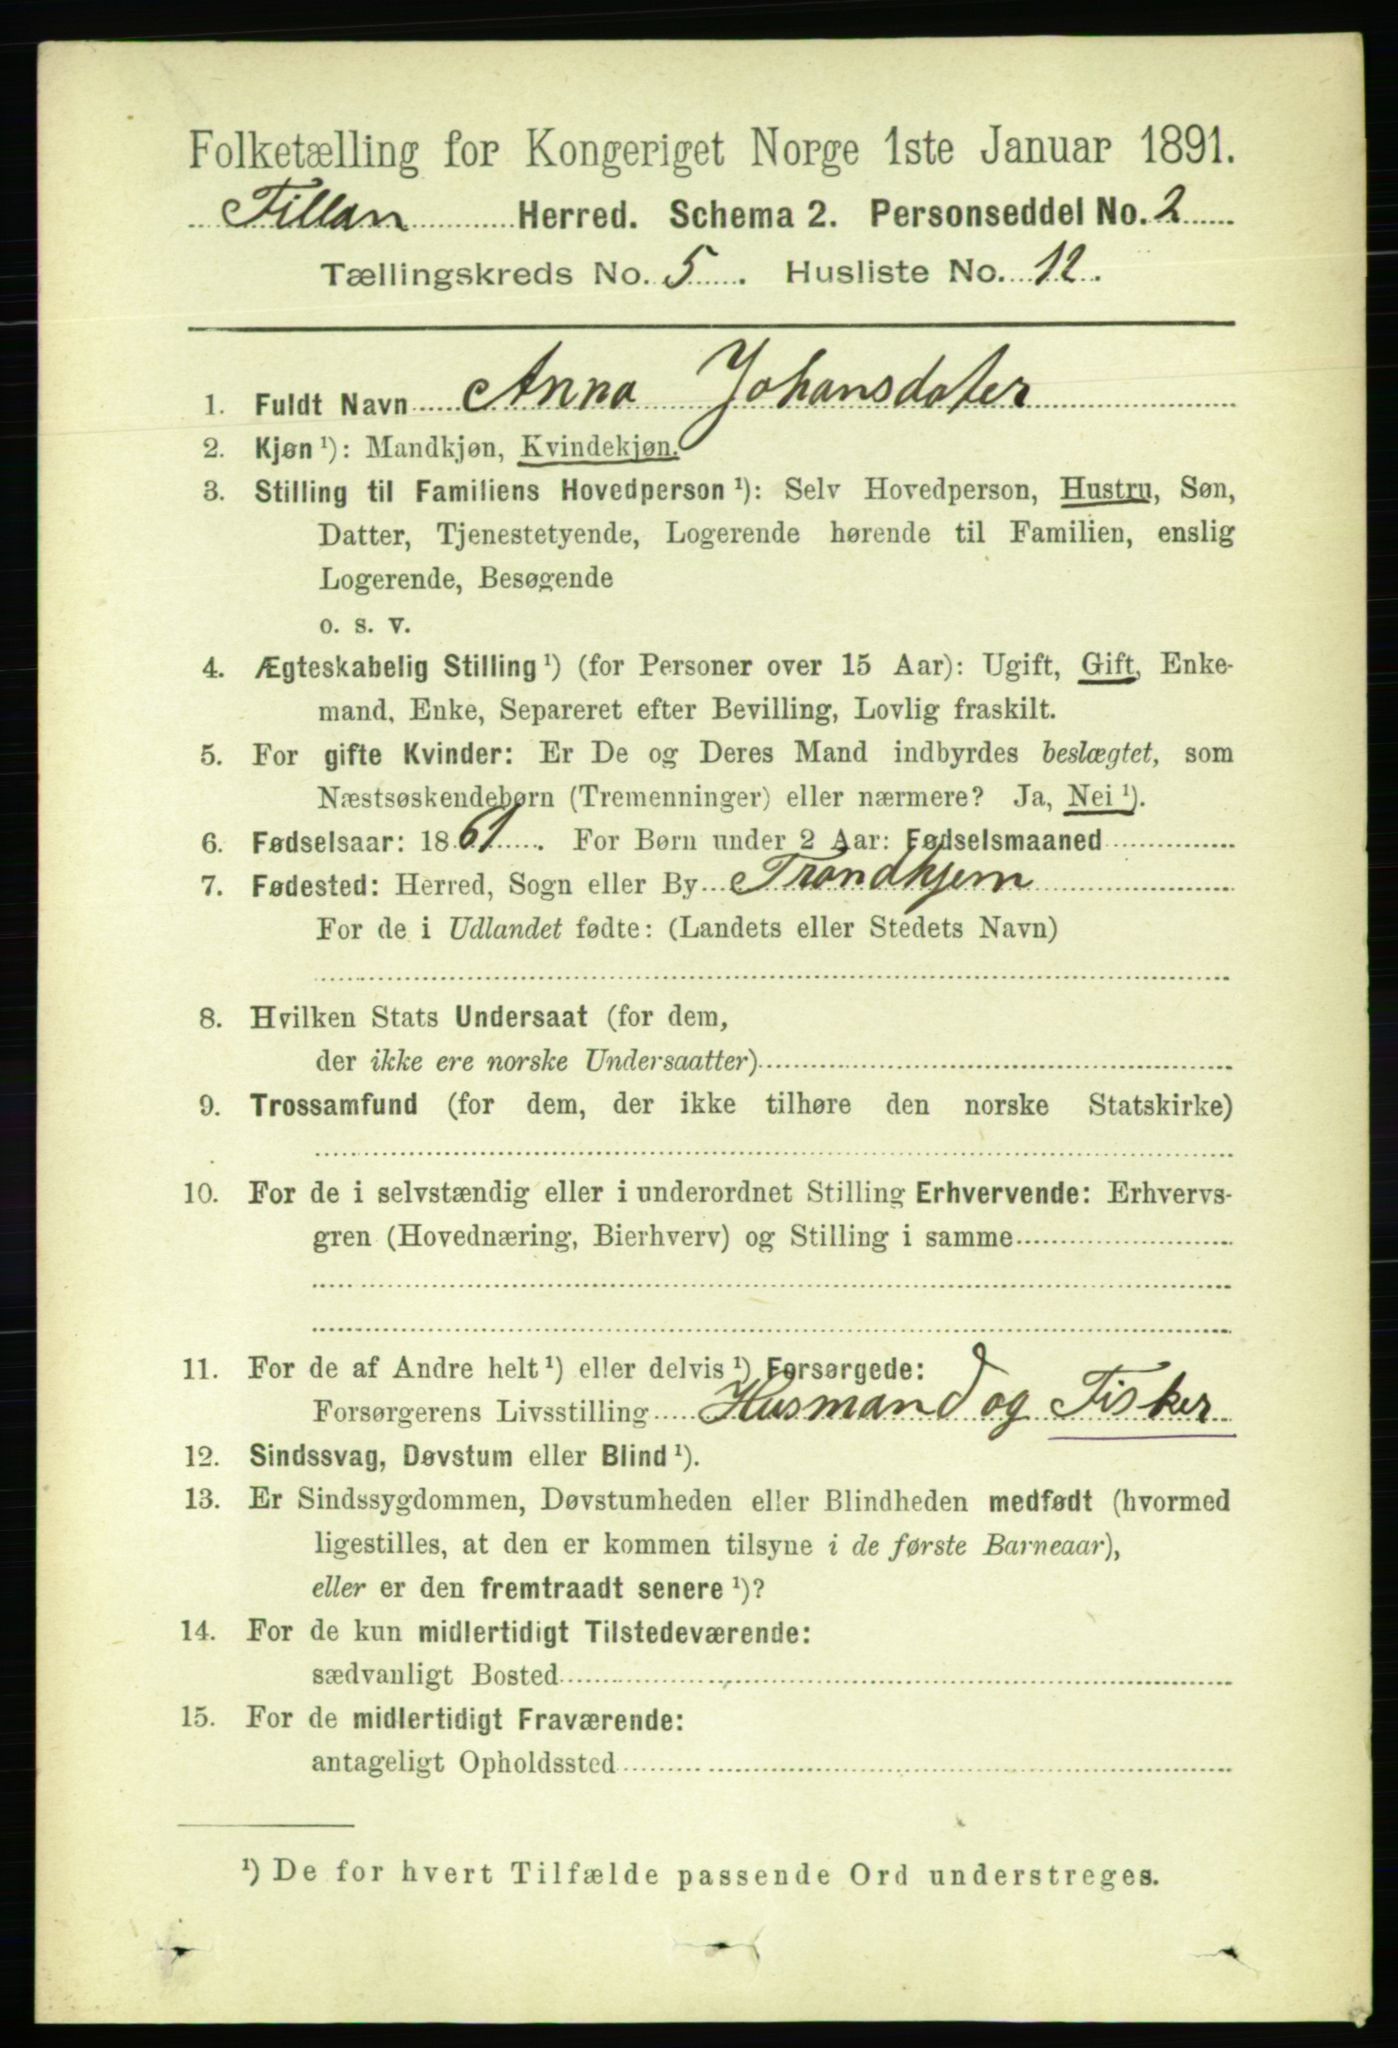 Folketælling for Kongeriget Norge 1ste Januar 1891.
Fillan Herred. Schema 2. Personseddel No. 2
Tællingskreds No. 5. Husliste No. 12.
1. Fuldt Navn Anna Johansdater
2. Kjøn ¹): Mandkjøn, Kvindekjøn.
3. Stilling til Familiens Hovedperson ¹): Selv Hovedperson, Hustru, Søn,
Datter, Tjenestetyende, Logerende hørende til Familien, enslig
Logerende, Besøgende
o. s. v.
4. Ægteskabelig Stilling ¹) (for Personer over 15 Aar): Ugift, Gift, Enke-
mand, Enke, Separeret efter Bevilling, Lovlig fraskilt.
5. For gifte Kvinder: Er De og Deres Mand indbyrdes beslægtet, som
Næstsøskendebørn (Tremenninger) eller nærmere? Ja, Nei ¹).
6. Fødselsaar: 1861. For Børn under 2 Aar: Fødselsmaaned
7. Fødested: Herred, Sogn eller By Trondhjem
For de i Udlandet fødte: (Landets eller Stedets Navn)
8. Hvilken Stats Undersaat (for dem,
der ikke ere norske Undersaatter)
9. Trossamfund (for dem, der ikke tilhøre den norske Statskirke)
10. For de i selvstændig eller i underordnet Stilling Erhvervende: Erhvervs-
gren (Hovednæring, Bierhverv) og Stilling i samme
11. For de af Andre helt ¹) eller delvis ¹) Forsørgede:
Forsørgerens Livsstilling Husmand og Fisker
12. Sindssvag, Døvstum eller Blind ¹).
13. Er Sindssygdommen, Døvstumheden eller Blindheden medfødt (hvormed
ligestilles, at den er kommen tilsyne i de første Barneaar),
eller er den fremtraadt senere ¹)?
14. For de kun midlertidigt Tilstedeværende:
sædvanligt Bosted
15. For de midlertidigt Fraværende:
antageligt Opholdssted
¹) De for hvert Tilfælde passende Ord understreges.